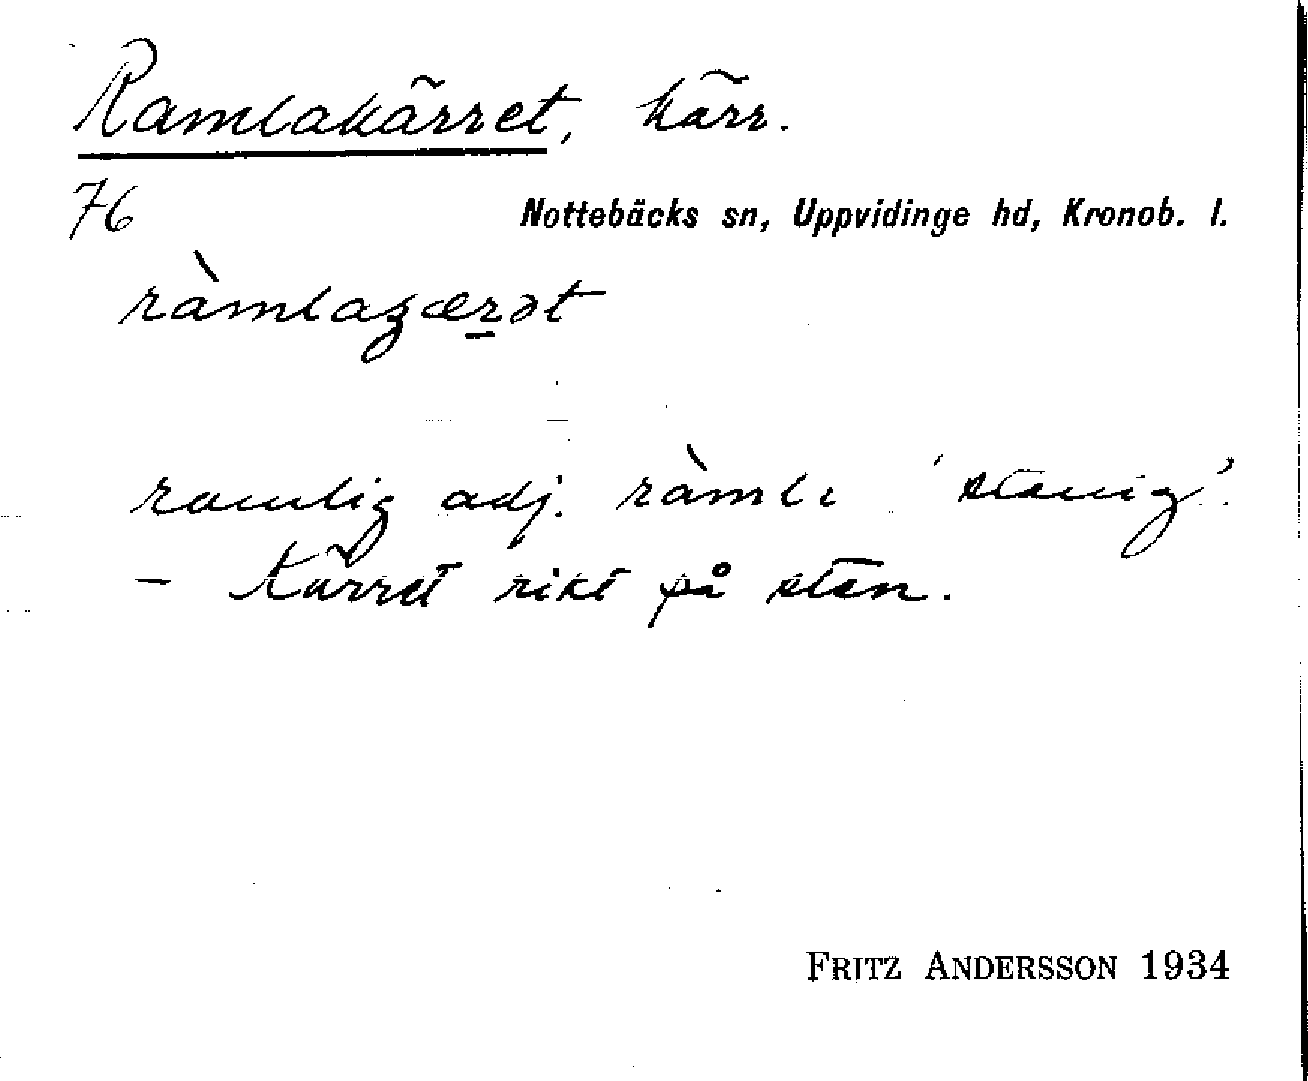 Ramlakärret, kärr.
76
Nottebäcks sn, Uppvidinge hd, Kronob. l.
ràmlagærət
ramlig adj. ràmlı 'stenig'.
- Kärret rikt på sten.
FRITZ ANDERSSON 1934